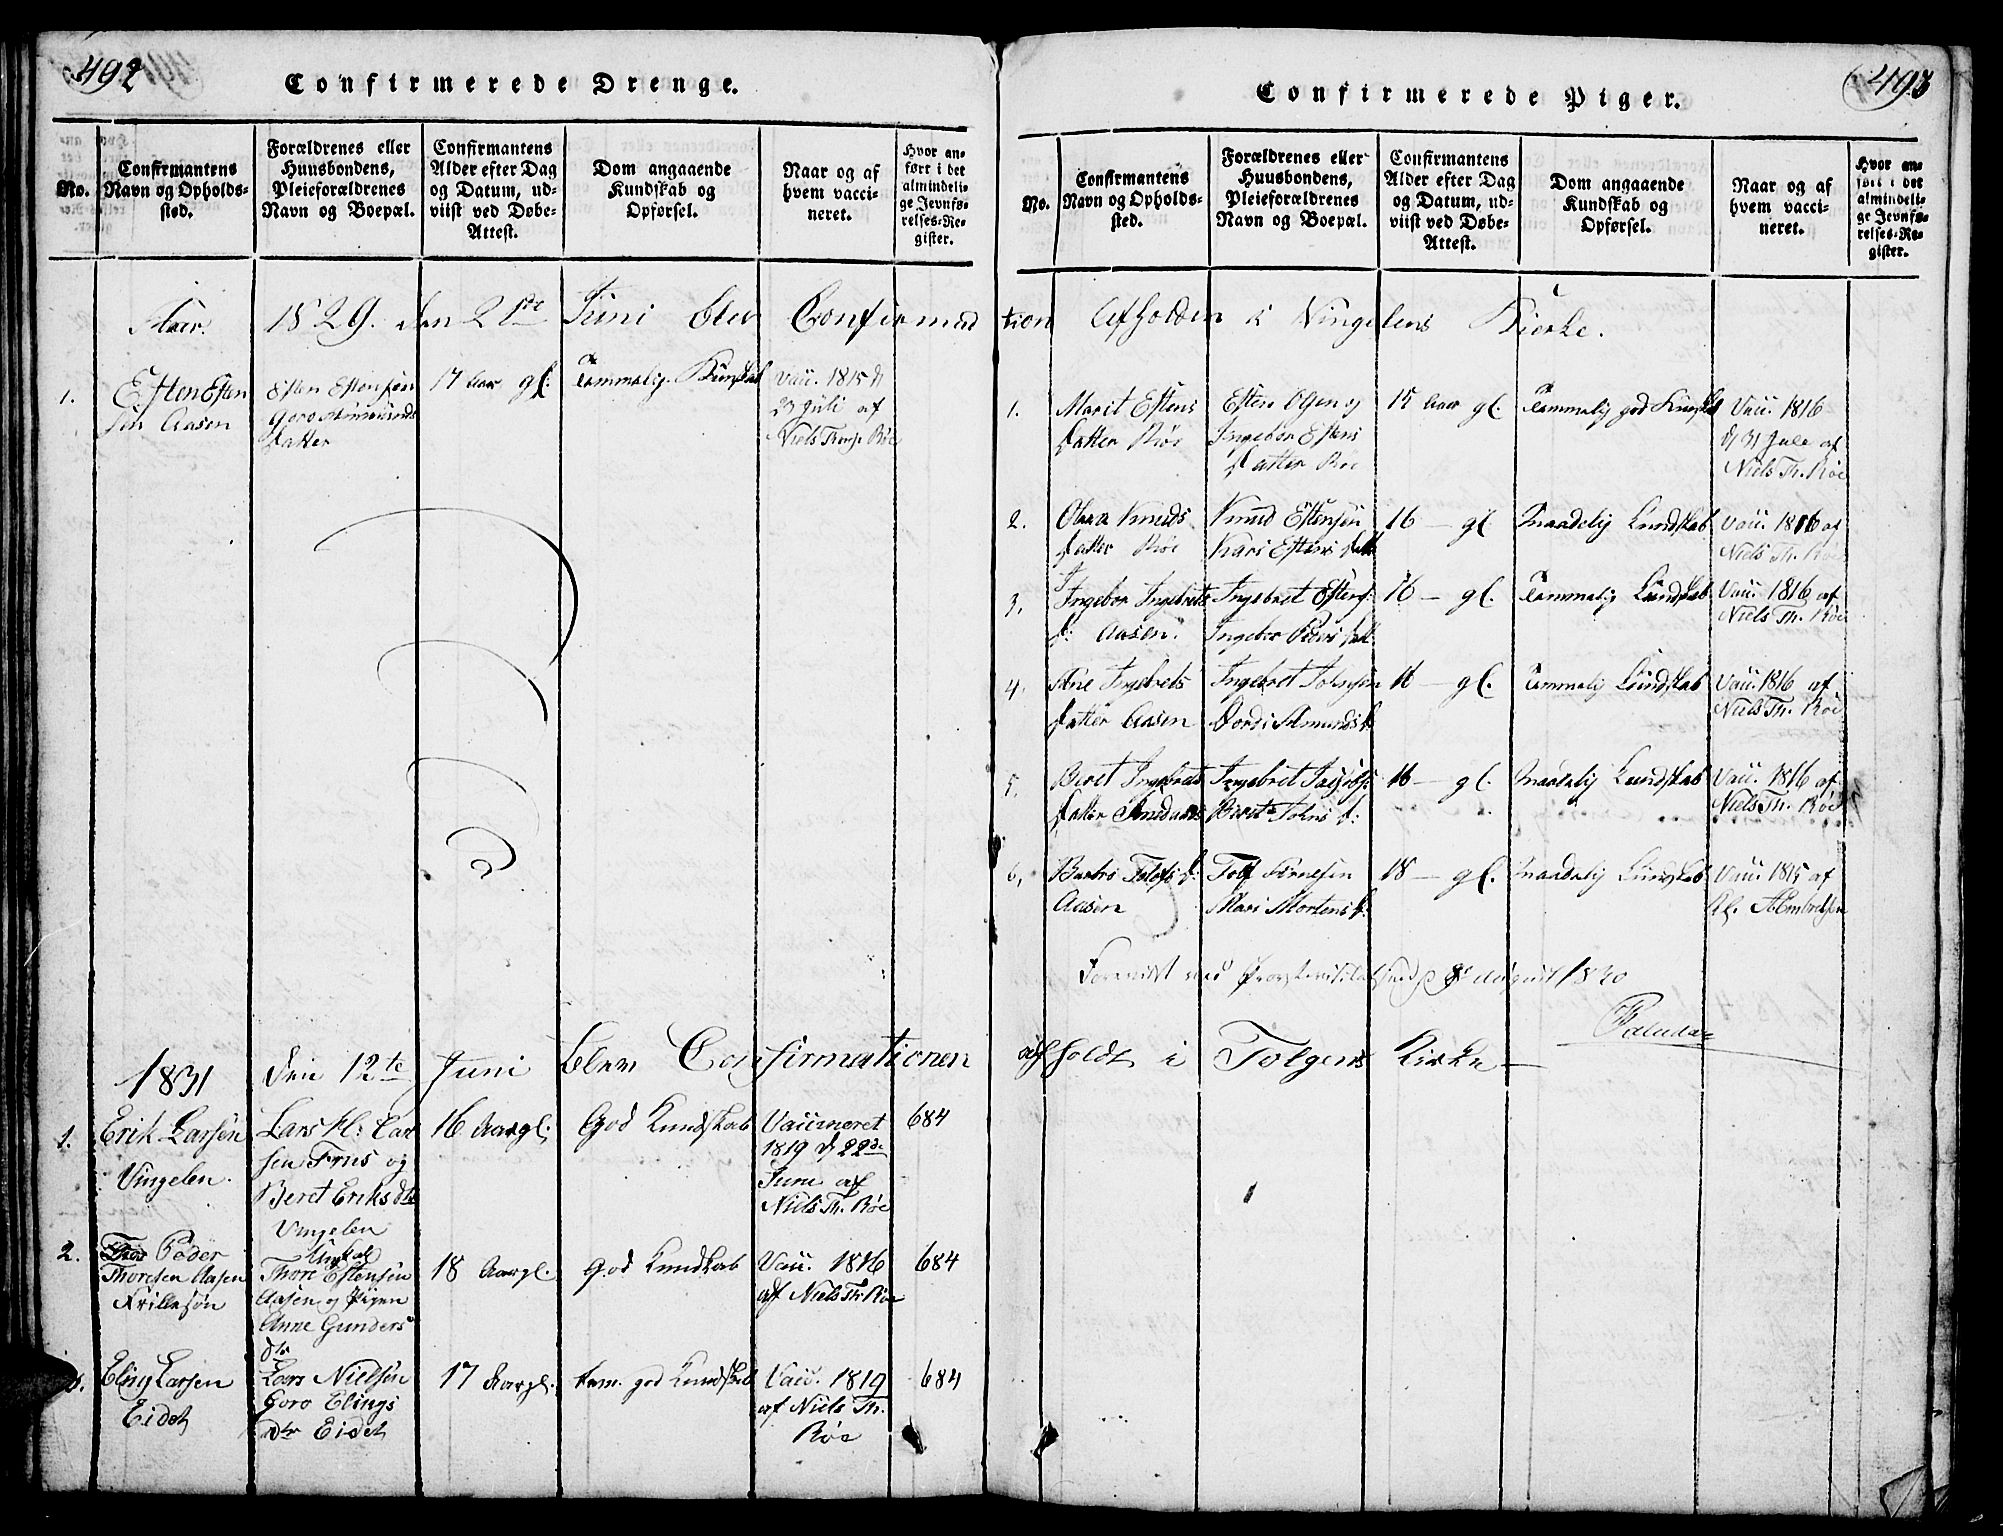 492
Confirmerede Drenge.
No.
Confirmantens
Navn og Opholds-
sted.
Forældrenes eller
Huusbondens,
Pleieforældrenes
Navn og Boepæl.
Confirmantens
Alder efter Dag
og Datum, ud-
viist ved Døbe-
Attest.
Dom angaaende
Kundskab og
Opførsel.
Naar og af
hvem vacci-
neret.
Hvor an-
ført i det
almindeli-
ge Jevnfø-
relses-Re-
gister.
Aar. 1829. den 21de Juni blev Confirma
1.
Esten Esten
sen Aasen
Esten Estensen
Goro Amunds
datter
17 Aar gl:
Temmelig Kundskab
Vac. 1815 d
23 Juli af
Niels Thorse Røe
1831 Den 12te Juni blev Confirmationen
1.
Erik Larsen
Vingelen.
Lars Kl: Lar
sen Trus og
Beret Eriks dtr
Vingelen
16 Aar gl:
God Kundskab
Vaccineret
1819 d 22de
Juni af
Niels Th. Røe
684
2.
Peder
Thoresen Aasen
Thore Estensen
Aasen og Pigen
Anne Gunders
dtr
18 Aar gl.
God Kundskab
Vac. 1816
af Niels Th. Røe
684
3.
Eling Larsen
Eidet
Lars Nielsen
Goro Elings
dtr Eidet
17 Aar gl.
tem. god Kundskab
Vac. 1819
af Niels Th.
Røe
684
493
Confirmerede Piger.
No.
Confirmantens
Navn og Opholds-
sted.
Forældrenes eller
Huusbondens,
Pleieforældrenes
Navn og Boepæl.
Confirmantens
Alder efter Dag
og Datum, ud-
viist ved Døbe-
Attest.
Dom angaaende
Kundskab og
Opførsel.
Naar og af
hvem vacci-
neret.
Hvor an-
ført i det
almindeli-
ge Jevnfø-
relses-Re-
gister.
tion Afholden i Vingelens Kierke.
1.
Marit Estens
datter Røe
Esten Olsen og
Ingebor Estens
datter Røe
15 Aar gl.
Temmelig god Kundskab
Vac. 1816
d 31 Jule af
Niels Th. Røe
2.
Olava Knuds
datter Røe
Knud Estensen
Kari Estens datt
16 — gl
Maadelig Kundskab
Vac. 1816 af
Niels Th. Røe
3.
Ingebor Ingebrets
d: Aasen.
Ingebret Estens:
Ingebor Peders datt.
16 — gl.
Temmelig Kundskab
Vac. 1816 af
Niels Th. Røe
4.
Ane Ingebrets
datter Aasen
Ingebret Johnsen
Dordi Amunds d.
16 — gl.
Temmelig Kundskab
Vac. 1816 af
Niels Th. Røe
5.
Beret Ingebrets
datter
Ingebret
Beret Johns d:
16 — gl.
Maadelig Kundskab
Vac. 1816 af
Niels Th. Røe
6.
Barbro Tolofs d:
Aasen
Tolf
Mari Mortens d.
18 — gl.
Maadelig Kundskab
Vac. 1815 af
Foreviist ved August 1830
afholdt i Tolgens Kirke —